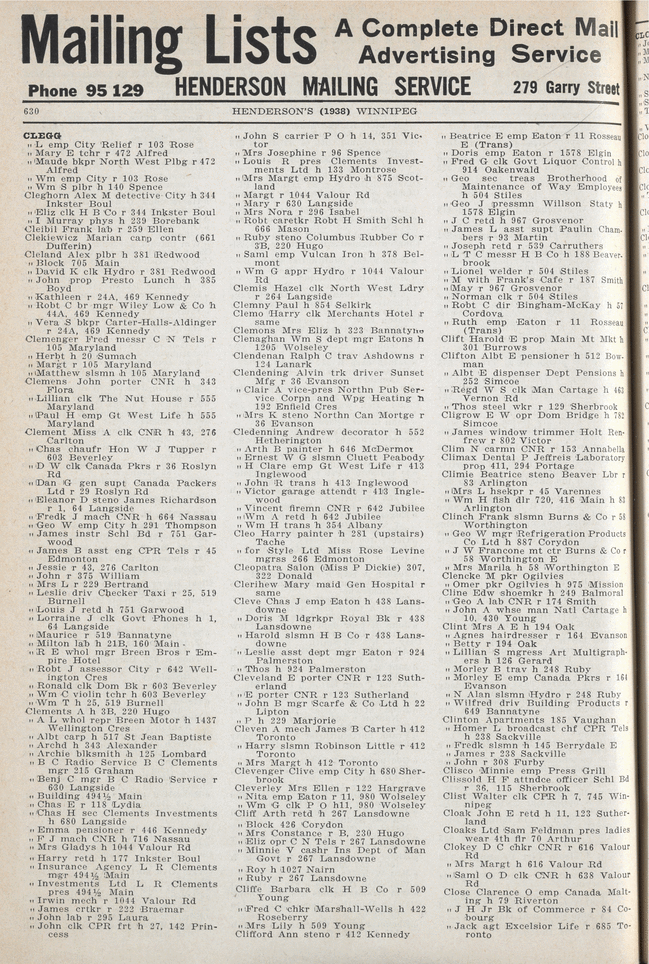 Mailing Lists
A Complete Direct Mail
Advertising Service
Phone 95 129 HENDERSON MAILING SERVICE 279 Garry Street
630 HENDERSON'S (1938) WINNIPEG
CLEGG
" L emp City Relief r 103 Rose
" Mary E tchr r 472 Alfred
" Maude bkpr North West Plbg r 472
Alfred
" Wm emp City r 103 Rose
" Wm S plbr h 140 Spence
Cleghorn Alex M detective City h 344
Inkster Boul
" Eliz clk H B Co r 344 Inkster Boul
" I Murray phys h 239 Borebank
Cleibil Frank lab r 259 Ellen
Clekiewicz Marian carp contr (661
Dufferin)
Cleland Alex plbr h 381 Redwood
" Block 705 Main
" David K clk Hydro r 381 Redwood
" John prop Presto Lunch h 385
Boyd
" Kathleen r 24A, 469 Kennedy
" Robt C br mgr Wiley Low & Co h
44A, 469 Kennedy
" Vera S bkpr Carter-Halls-Aldinger
r 24A, 469 Kennedy
Clemenger Fred messr C N Tels r
105 Maryland
" Herbt h 20 Sumach
" Margt r 105 Maryland
" Matthew slsmn h 105 Maryland
Clemens John porter CNR h 343
Flora
" Lillian clk The Nut House r 555
Maryland
" Paul H emp Gt West Life h 555
Maryland
Clement Miss A clk CNR h 43, 276
Carlton
" Chas chaufr Hon W J Tupper r
603 Beverley
" D W clk Canada Pkrs r 36 Roslyn
Rd
" Dan G gen supt Canada Packers
Ltd r 29 Roslyn Rd
" Eleanor D steno James Richardson
r 1, 64 Langside
" Fredk J mach CNR h 664 Nassau
" Geo W emp City h 291 Thompson
" James instr Schl Bd r 751 Gar-
wood
" James B asst eng CPR Tels r 45
Edmonton
" Jessie r 43, 276 Carlton
" John r 375 William
" Mrs L r 229 Bertrand
" Leslie driv Checker Taxi r 25, 519
Burnell
" Louis J retd h 751 Garwood
" Lorraine J clk Govt Phones h 1,
64 Langside
" Maurice r 519 Bannatyne
" Milton lab h 21B, 160 Main
" R E whol mgr Breen Bros r Em-
pire Hotel
" Robt J assessor City r 642 Well-
ington Cres
" Ronald clk Dom Bk r 603 Beverley
" Wm C violin tchr h 603 Beverley
" Wm T h 25, 519 Burnell
Clements A h 3B, 220 Hugo
" A L whol repr Breen Motor h 1437
Wellington Cres
" Albt carp h 517 St Jean Baptiste
" Archd h 343 Alexander
" Archie blksmith h 125 Lombard
" B C Radio Service B C Clements
mgr 215 Graham
" Benj C mgr B C Radio Service r
630 Langside
" Building 494½ Main
" Chas E r 118 Lydia
" Chas H sec Clements Investments
h 680 Langside
" Emma pensioner r 446 Kennedy
" F J mach CNR h 716 Nassau
" Mrs Gladys h 1044 Valour Rd
" Harry retd h 177 Inkster Boul
" Insurance Agency L R Clements
mgr 494½ Main
" Investments Ltd L R Clements
pres 494½ Main
" Irwin mech r 1044 Valour Rd
" James crtkr r 222 Braemar
" John lab r 295 Laura
" John clk CPR frt h 27, 142 Prin-
cess
" John S carrier P O h 14, 351 Vic-
tor
" Mrs Josephine r 96 Spence
" Louis R pres Clements Invest-
ments Ltd h 133 Montrose
" Mrs Margt emp Hydro h 875 Scot-
land
" Margt r 1044 Valour Rd
" Mary r 630 Langside
" Mrs Nora r 296 Isabel
" Robt caretkr Robt H Smith Schl h
666 Mason
" Ruby steno Columbus Rubber Co r
3B, 220 Hugo
" Saml emp Vulcan Iron h 378 Bel-
mont
" Wm G appr Hydro r 1044 Valour
Rd
Clemis Hazel clk North West Ldry
r 264 Langside
Clemny Paul h 854 Selkirk
Clemo Harry clk Merchants Hotel r
same
Clemons Mrs Eliz h 323 Bannatyne
Clenaghan Wm S dept mgr Eatons h
1205 Wolseley
Clendenan Ralph C trav Ashdowns r
124 Lanark
Clendening Alvin trk driver Sunset
Mfg r 36 Evanson
" Clair A vice-pres Northn Pub Ser-
vice Corpn and Wpg Heating h
192 Enfield Cres
" Mrs K steno Northn Can Mortge r
36 Evanson
Cledenning Andrew decorator h 552
Hetherington
" Arth B painter h 646 McDermot
" Ernest W G slsmn Cluett Peabody
" H Clare emp Gt West Life r 413
Inglewood
" John R trans h 413 Inglewood
" Victor garage attendt r 413 Ingle-
wood
" Vincent firemn CNR r 642 Jubilee
" Wm A retd h 642 Jubilee
" Wm H trans h 354 Albany
Cleo Harry painter h 281 (upstairs)
Tache
" for Style Ltd Miss Rose Levine
mgrss 266 Edmonton
Cleopatra Salon (Miss P Dickie) 307,
322 Donald
Clerihew Mary maid Gen Hospital r
same
Cleve Chas J emp Eaton h 438 Lans-
downe
" Doris M ldgrkpr Royal Bk r 438
Lansdowne
" Harold slsmn H B Co r 438 Lans-
downe
" Leslie asst dept mgr Eaton r 924
Palmerston
" Thos h 924 Palmerston
Cleveland E porter CNR r 123 Suth-
erland
" E porter CNR r 123 Sutherland
" John B mgr Scarfe & Co Ltd h 22
Lipton
" P h 229 Marjorie
Cleven A mech James B Carter h 412
Toronto
" Harry slsmn Robinson Little r 412
Toronto
" Mrs Margt h 412 Toronto
Clevenger Clive emp City h 680 Sher-
brook
Cleverley Mrs Ellen r 122 Hargrave
" Nita emp Eaton r 11, 980 Wolseley
" Wm G clk P O h11, 980 Wolseley
Cliff Arth retd h 267 Lansdowne
" Block 426 Corydon
" Mrs Constance r B, 230 Hugo
" Eliz opr C N Tels r 267 Lansdowne
" Minnie V cashr Ins Dept of Man
Govt r 267 Lansdowne
" Roy h 1027 Nairn
" Ruby r 267 Lansdowne
Cliffe Barbara clk H B Co r 509
Young
" Fred C chkr Marshall-Wells h 422
Roseberry
" Mrs Lily h 509 Young
Clifford Ann steno r 412 Kennedy
" Beatrice E emp Eaton r 11 Rosseau
E (Trans)
" Doris emp Eaton r 1578 Elgin
" Fred G clk Govt Liquor Control h
914 Oakenwald
" Geo sec treas Brotherhood of
Maintenance of Way Employees
h 504 Stiles
" Geo J pressmn Willson Staty h
1578 Elgin
" J C retd h 967 Grosvenor
" James L asst supt Paulin Cham-
bers r 93 Martin
" Joseph retd r 539 Carruthers
" L T C messr H B Co h 188 Beaver-
brook
" Lionel welder r 504 Stiles
" M with Frank's Cafe r 187 Smith
" May r 967 Grosvenor
" Norman clk r 504 Stiles
" Robt C dir Bingham-McKay h 57
Cordova
" Ruth emp Eaton r 11 Rosseau
(Trans)
Clift Harold E prop Main Mt Mkt h
301 Burrows
Clifton Albt E pensioner h 512 Bow-
man
" Albt E dispenser Dept Pensions h
252 Simcoe
" Regd W S clk Man Cartage h 463
Vernon Rd
" Thos steel wkr r 129 Sherbrook
Cligrow E W opr Dom Bridge h 782
Simcoe
" James window trimmer Holt Ren-
frew r 802 Victor
Clim N carmn CNR r 153 Annabella
Climax Dental P Jeffreis Laboratory
prop 411, 294 Portage
Climie Beatrice steno Beaver Lbr r
83 Arlington
" Mrs L hsekpr r 45 Varennes
" Wm H fish dlr 720, 416 Main h 83
Arlington
Clinch Frank slsmn Burns & Co r 58
Worthington
" Geo W mgr Refrigeration Products
Co Ltd h 887 Corydon
" J W Francone mt ctr Burns & Co r
58 Worthington E
" Mrs Marila h 58 Worthington E
Clencke M pkr Ogilvies
" Omer pkr Ogilvies h 975 Mission
Cline Edw shoemkr h 249 Balmoral
" Geo A lab CNR r 174 Smith
" John A whse man Natl Cartage h
10, 430 Young
Clint Mrs A E h 194 Oak
" Agnes hairdresser r 164 Evanson
" Betty r 194 Oak
" Lillian S mgress Art Multigraph-
ers h 126 Gerard
" Morley B trav h 248 Ruby
" Morley E emp Canada Pkrs r 164
Evanson
" N Alan slsmn Hydro r 248 Ruby
" Wilfred driv Building Products r
649 Bannatyne
Clinton Apartments 185 Vaughan
" Homer L broadcast chf CPR Tels
h 238 Sackville
" Fredk slsmn h 145 Berrydale E
" James r 238 Sackville
" John r 308 Furby
Clisco Minnie emp Press Grill
Clissold H F attndce officer Schl Bd
r 36, 115 Sherbrook
Clist Walter clk CPR h 7, 745 Win-
nipeg
Cloak John E retd h 11, 123 Suther-
land
Cloaks Ltd Sam Feldman pres ladies
wear 4th flr 70 Arthur
Clokey D C chkr CNR r 616 Valour
Rd
" Mrs Margt h 616 Valour Rd
" Saml O D clk CNR h 638 Valour
Rd
Close Clarence O emp Canada Malt-
ing h 79 Riverton
" J H Jr Bk of Commerce r 84 Co-
bourg
" Jack agt Excelsior Life r 685 To-
ronto